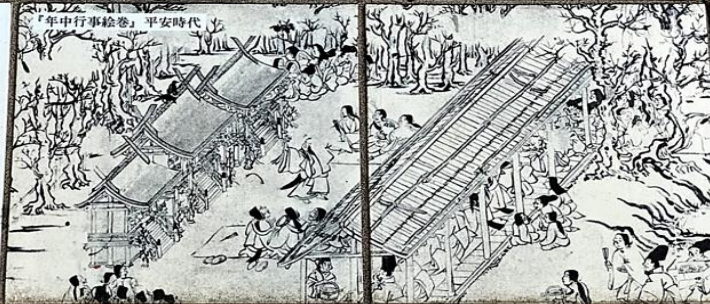 『年中行事絵巻』平安時代